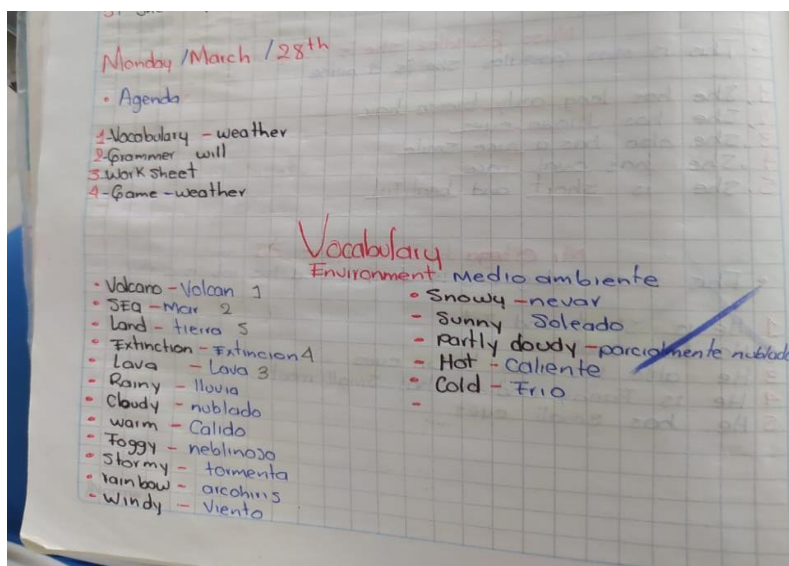 Monday /March /28th
• Agenda
1-Vocobulary - weather
2-Grammer will
3-Work sheet
4-Game - weather
Vocabulary
Environment Medio ambiente
• Volcano - Volcan 1
• SEa - Mar 2
• Land - tierra 5
• Extinction - Extincion 4
• Lava - Lava 3
• Rainy - lluvia
• Cloudy - nublado
• warm - Calido
• Foggy - neblinoso
• Stormy - tormenta
• rainbow - arcohiris
• Windy - Viento
• Snowy - nevar
- Sunny Soleado
- partly cloudy - parcialmente nublado
- Hot - Caliente
• Cold - Frio